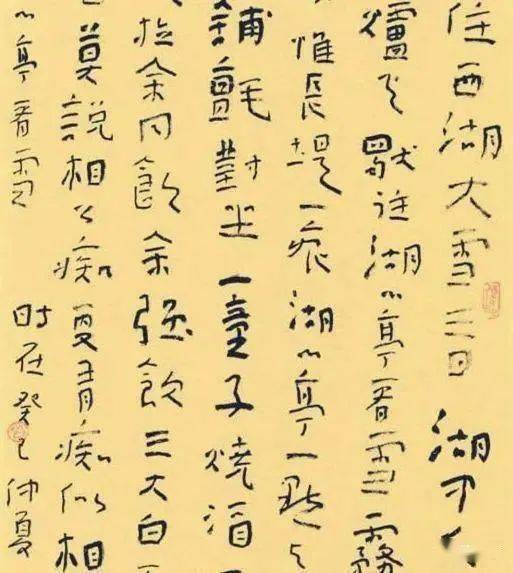 住西湖大雪三日湖中人
爐火獨往湖心亭看雪霧
惟長堤一痕湖心亭一點與
鋪氈對坐一童子燒酒
拉余同飲余強飲三大白而
曰莫說相公痴更有痴似相
心亭看雪 時在癸巳仲夏